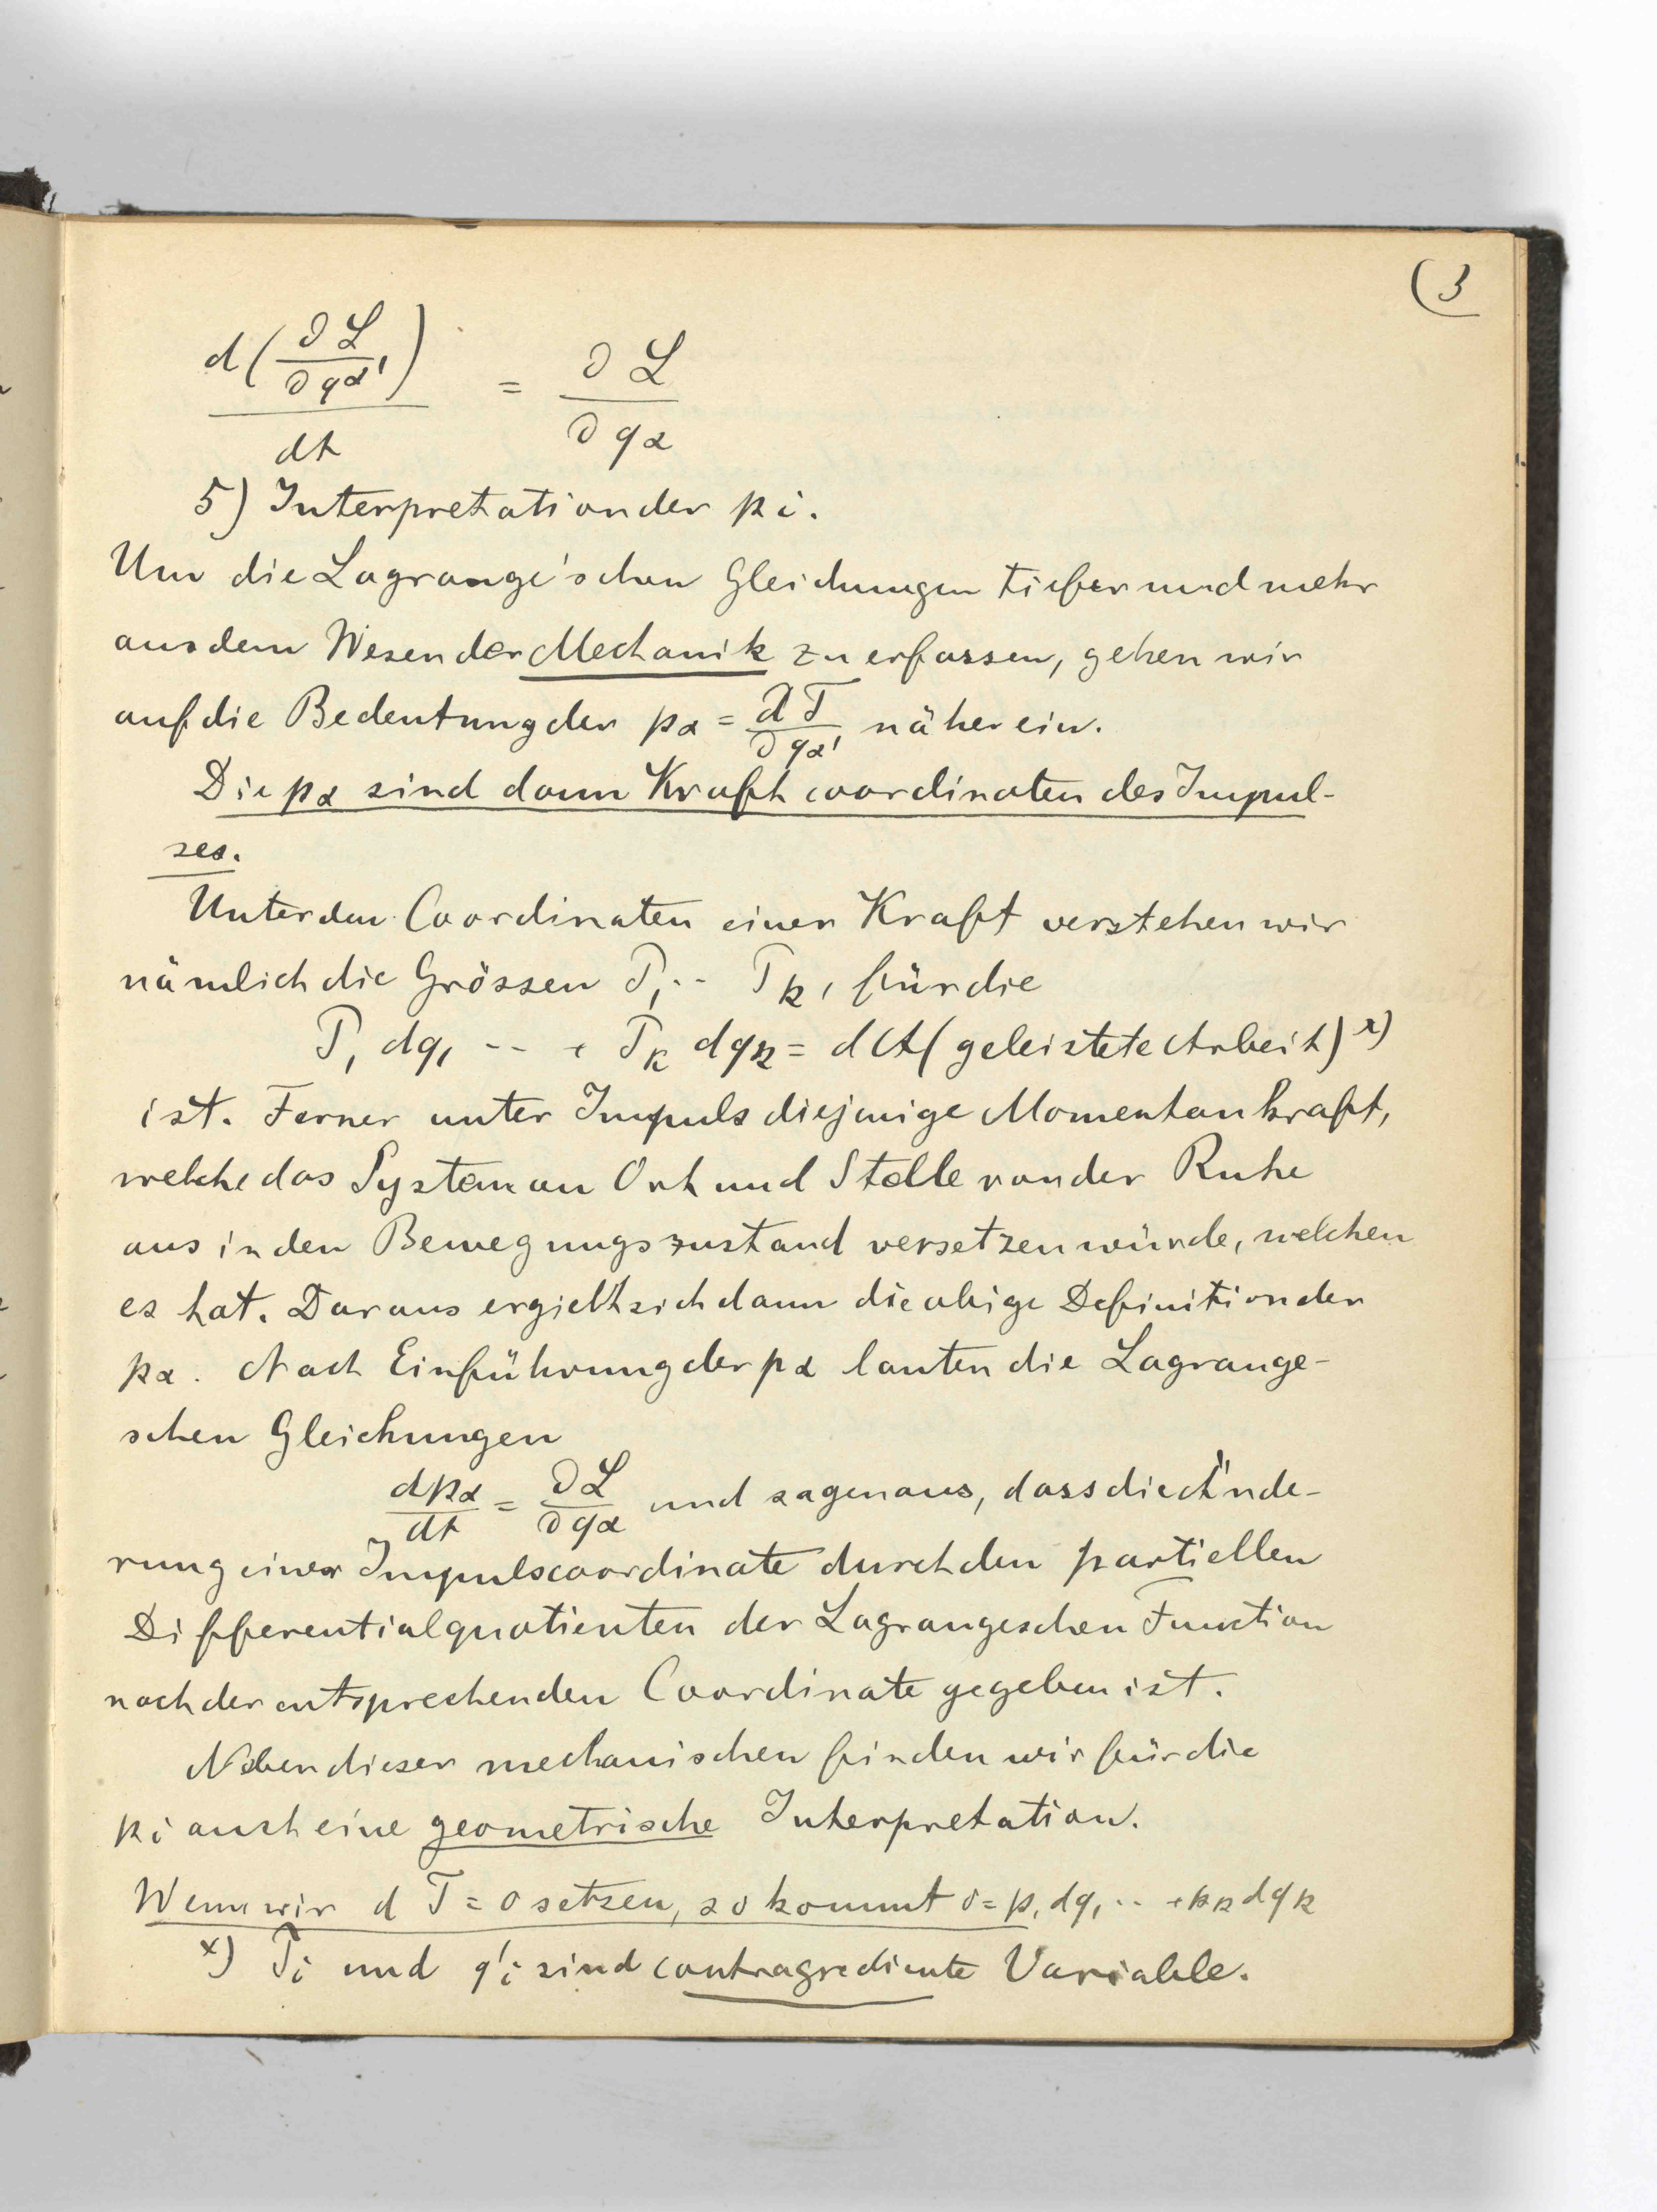 (3
d(∂L/∂qα')/dt = ∂L/∂qα
5) Interpretation der pi.
Um die Lagrange'schen Gleichungen tiefer und mehr
aus dem Wesen der Mechanik zu erfassen, gehen wir
auf die Bedeutung der pα = ∂T/∂qα' näher ein.
Die pα sind dann Kraftcoordinaten des Impul-
ses.
Unter den Coordinaten einer Kraft verstehen wir
nämlich die Grössen P1 .. Pk, für die
P1 dq1 -- + Pk dqk = dA (geleistete Arbeit) x)
ist. Ferner unter Impuls diejenige Momentankraft,
welche das System an Ort und Stelle von der Ruhe
aus in den Bewegungszustand versetzen würde, welchen
es hat. Daraus ergiebt sich dann die obige Definition der
pα. Nach Einführung der pα lauten die Lagrange-
schen Gleichungen
dpα/dt = ∂L/∂qα und sagen aus, dass die Ände-
rung einer Impulscoordinate durch den partiellen
Differentialquotienten der Lagrangeschen Function
nach der entsprechenden Coordinate gegeben ist.
Neben dieser mechanischen finden wir für die
pi auch eine geometrische Interpretation.
Wenn wir dT = 0 setzen, so kommt 0 = p1 dq1 .. + pk dqk
x) Pi und q'i sind contragrediente Variable.